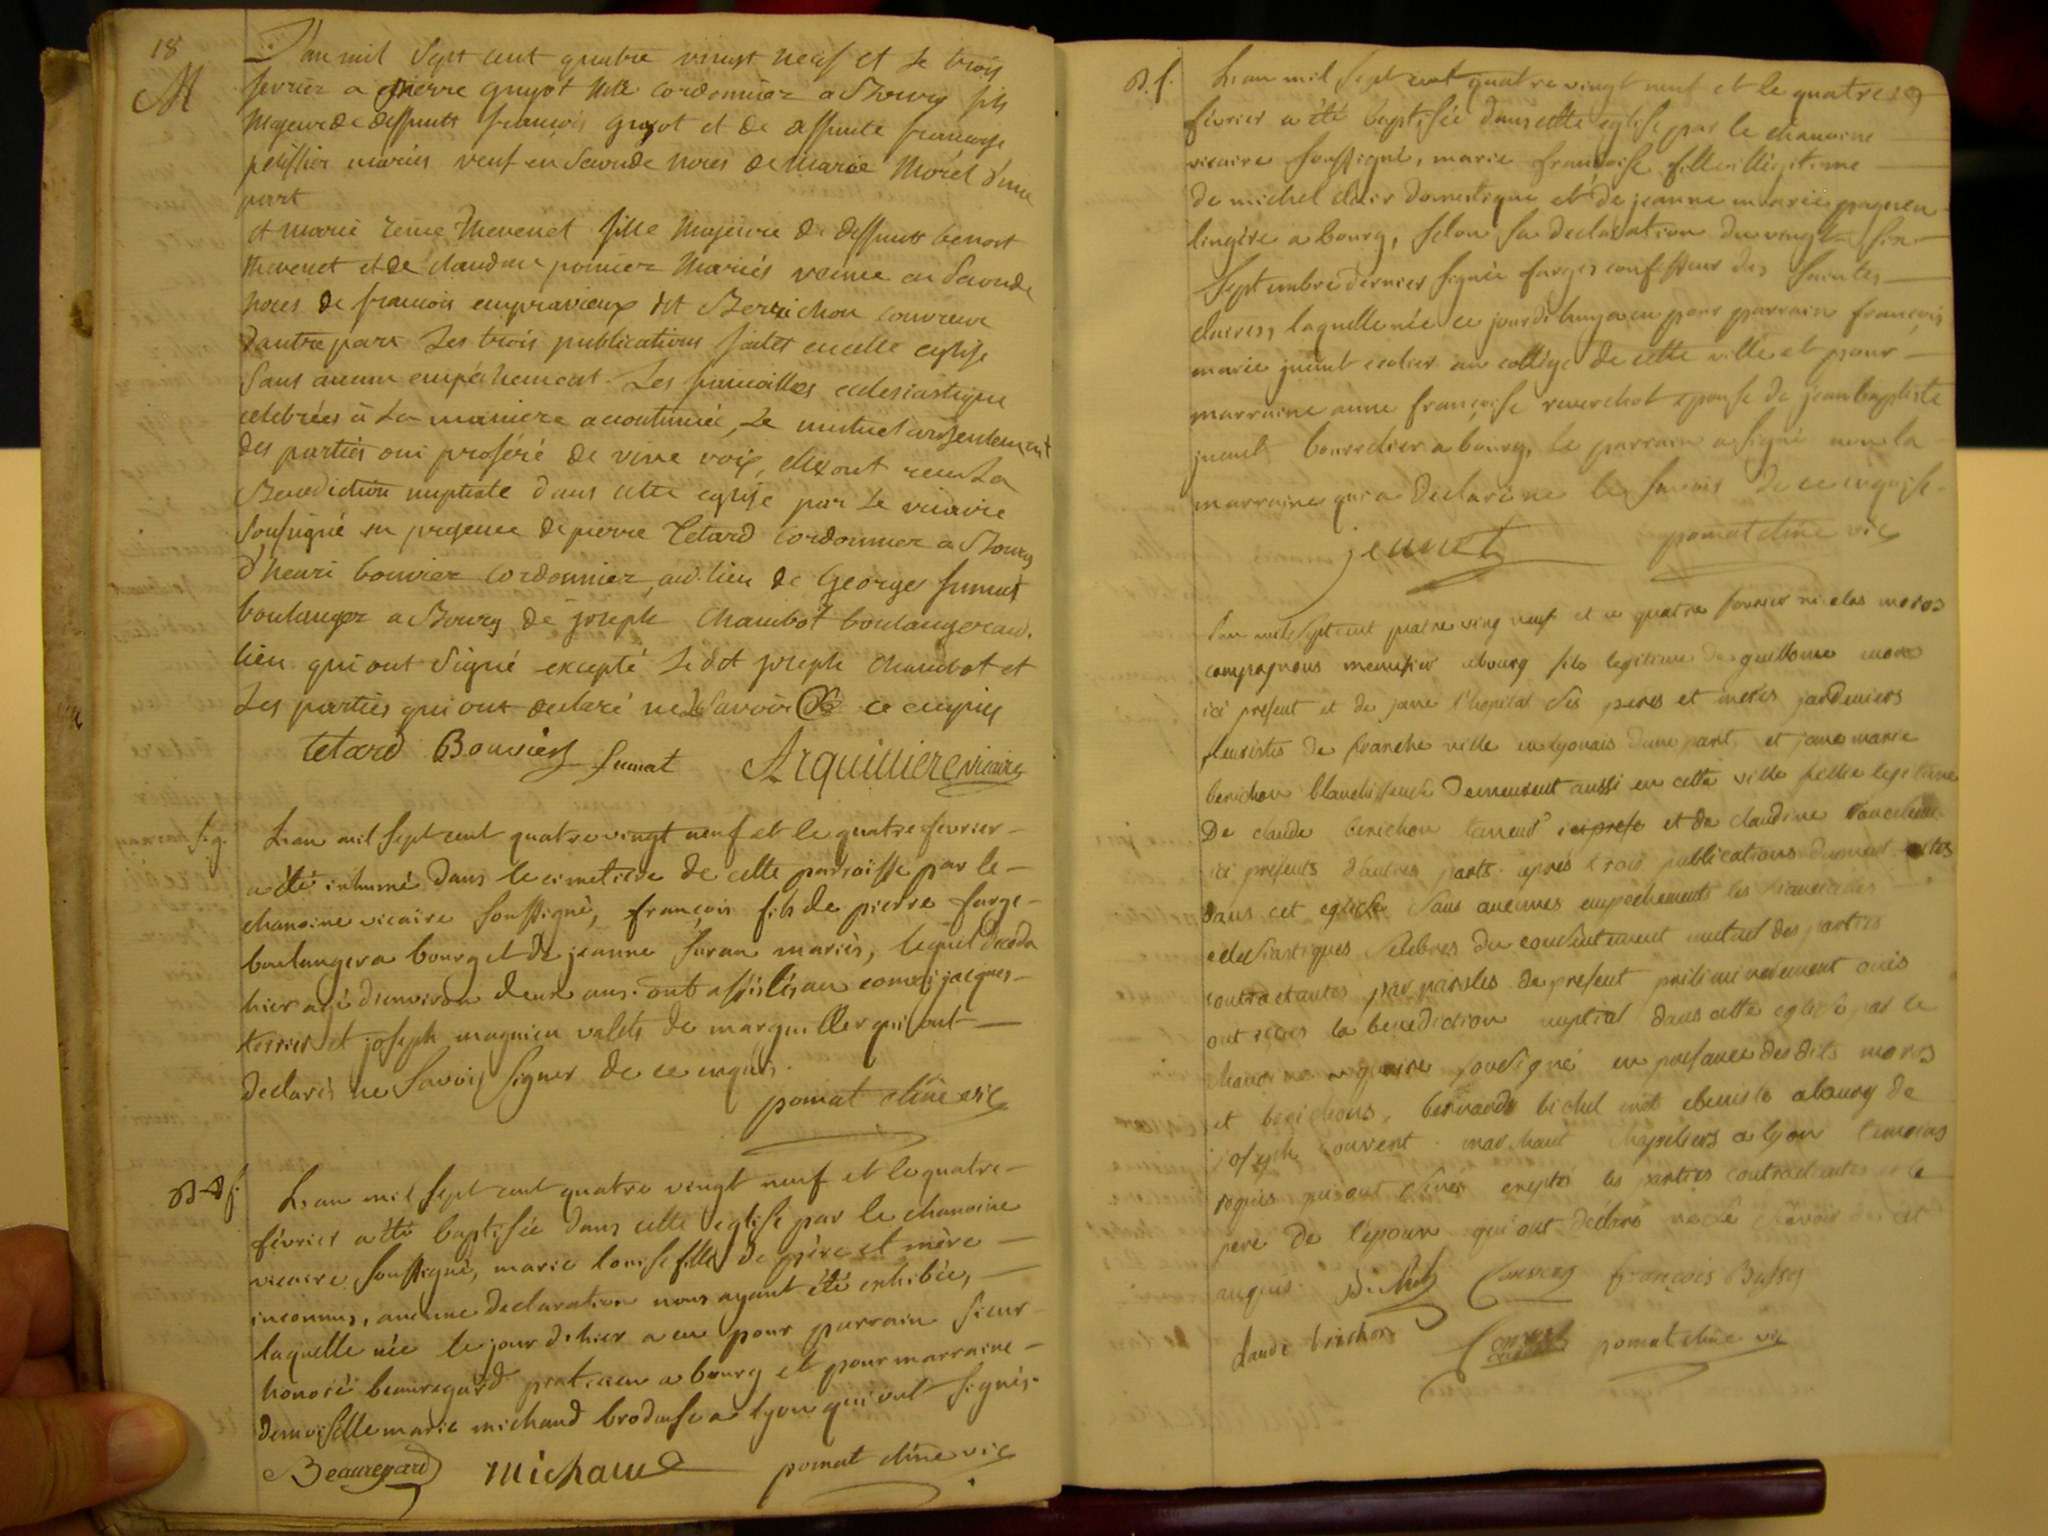 18
M
L'an mil sept cent quatre vingt neuf et le trois
fevrier a pierre guyot Mtre cordonnier a Bourg fils
Majeur de deffunts françois guyot et de deffunte francoise
pelissier mariés veuf en seconde noces de Marie Morel d'une
part
et marie reine thevenet fille Majeure de deffunts benoit
thevenet et de claudine poncier Mariés veuve en seconde
noces de francois empravieux dit Berrichon couvreur
d'autre part Les trois publications faites en cette eglise
sans aucun empéchement. Les fiancailles eclesiastique
celebrées à la maniere accoutumée, Le mutuel consentement
des parties oui proféré de vive voix, elles ont recu La
Benediction nuptiale dans cette eglise par le vicaire
sousigné en presence de pierre Tetard cordonnier a Bourg
d'henri bouvier cordonnier audit lieu de Georges fumat
boulanger a Bourg de joseph Chambot boulanger aud.
lieu qui ont signé excepté Ledit joseph chambot et
Les parties qui ont declaré ne le savoir de ce enquis
tetard Bouvier fumat Arquilliere vicaire
s.g.
L'an mil sept cent quatre vingt neuf et le quatre fevrier
a été inhumé dans le cimetiere de cette parroisse par le
chanoine vicaire soussigné, françois fils de pierre farge
boulanger a bourg et de jeanne suran mariés, lequel deceda
hier agé d'environ deux ans. ont assistés au convoi jacques
terrier et joseph magnien valets de marguillier qui ont
declarés ne savoir signer de ce enquis.
pomat chne vic
B. f.
L'an mil sept cent quatre vingt neuf et le quatre
février a été baptisée dans cette eglise par le chanoine
vicaire soussigné, marie louise fille de père et mère
inconnus, aucune declaration nous ayant été exhibée,
laquelle née le jour d'hier a eu pour parrain sieur
honoré beauregard praticien a bourg et pour marraine
demoiselle marie michaud brodeuse a lyon qui ont signés.
Beauregard michaud pomat chne vic
B. f.
L'an mil sept cent quatre vingt neuf et le quatre
février a été baptisée dans cette eglise par le chanoine
vicaire soussigné, marie françoise fille illégitime
de michel clair domestique et de jeanne marie pagneu
lingère a bourg, selon sa declaration du vingt six
septembre dernier signée farges confesseur des saintes
claires, laquelle née ce jourd'huy a eu pour parrain françois
marie jeunet ecolier au collège de cette ville et pour
marraine anne françoise reverchot epouse de jean baptiste
jeunet bourrelier a bourg, le parrain a signé non la
marraine qui a declaré ne le savoir de ce enquise.
jeunet pomat chne vic
l'an mil sept cent quatre ving neuf et le quatre fevrier nicolas moros
compagnons menuisier a bourg fils legitime de guillome moros
ici present et de jane l'hopital ses peres et meres jardeniers
fleuristes de franche ville en lyonais d'une part et jane marie
berichon blanchisseuse demeurent aussi en cette ville fillie legitime
de claude berichon tanneur et de claudine
ici presents d'autres parts. après trois publications dument faites
dans cet eglise sans aucunes empechements les fiancailles
eclesiastiques selebres du consentement mutuel des parties
contractantes par paroles de present preliminairement ouis
ont reçus la benediction nuptial dans cette eglise par le
chanoine vicaire sousigné en presance des dits moros
et berichons, bernard bichel mtre ebeniste a bourg de
joseph couvert marchant chapeliers a lyon temoins
requis qui ont signés exeptés les parties contractantes et le
pere de l'epoux qui ont déclaré ne le savoir de ce
anquis. Bichel Couvert françois Busset
claude brichon pomat chne vic